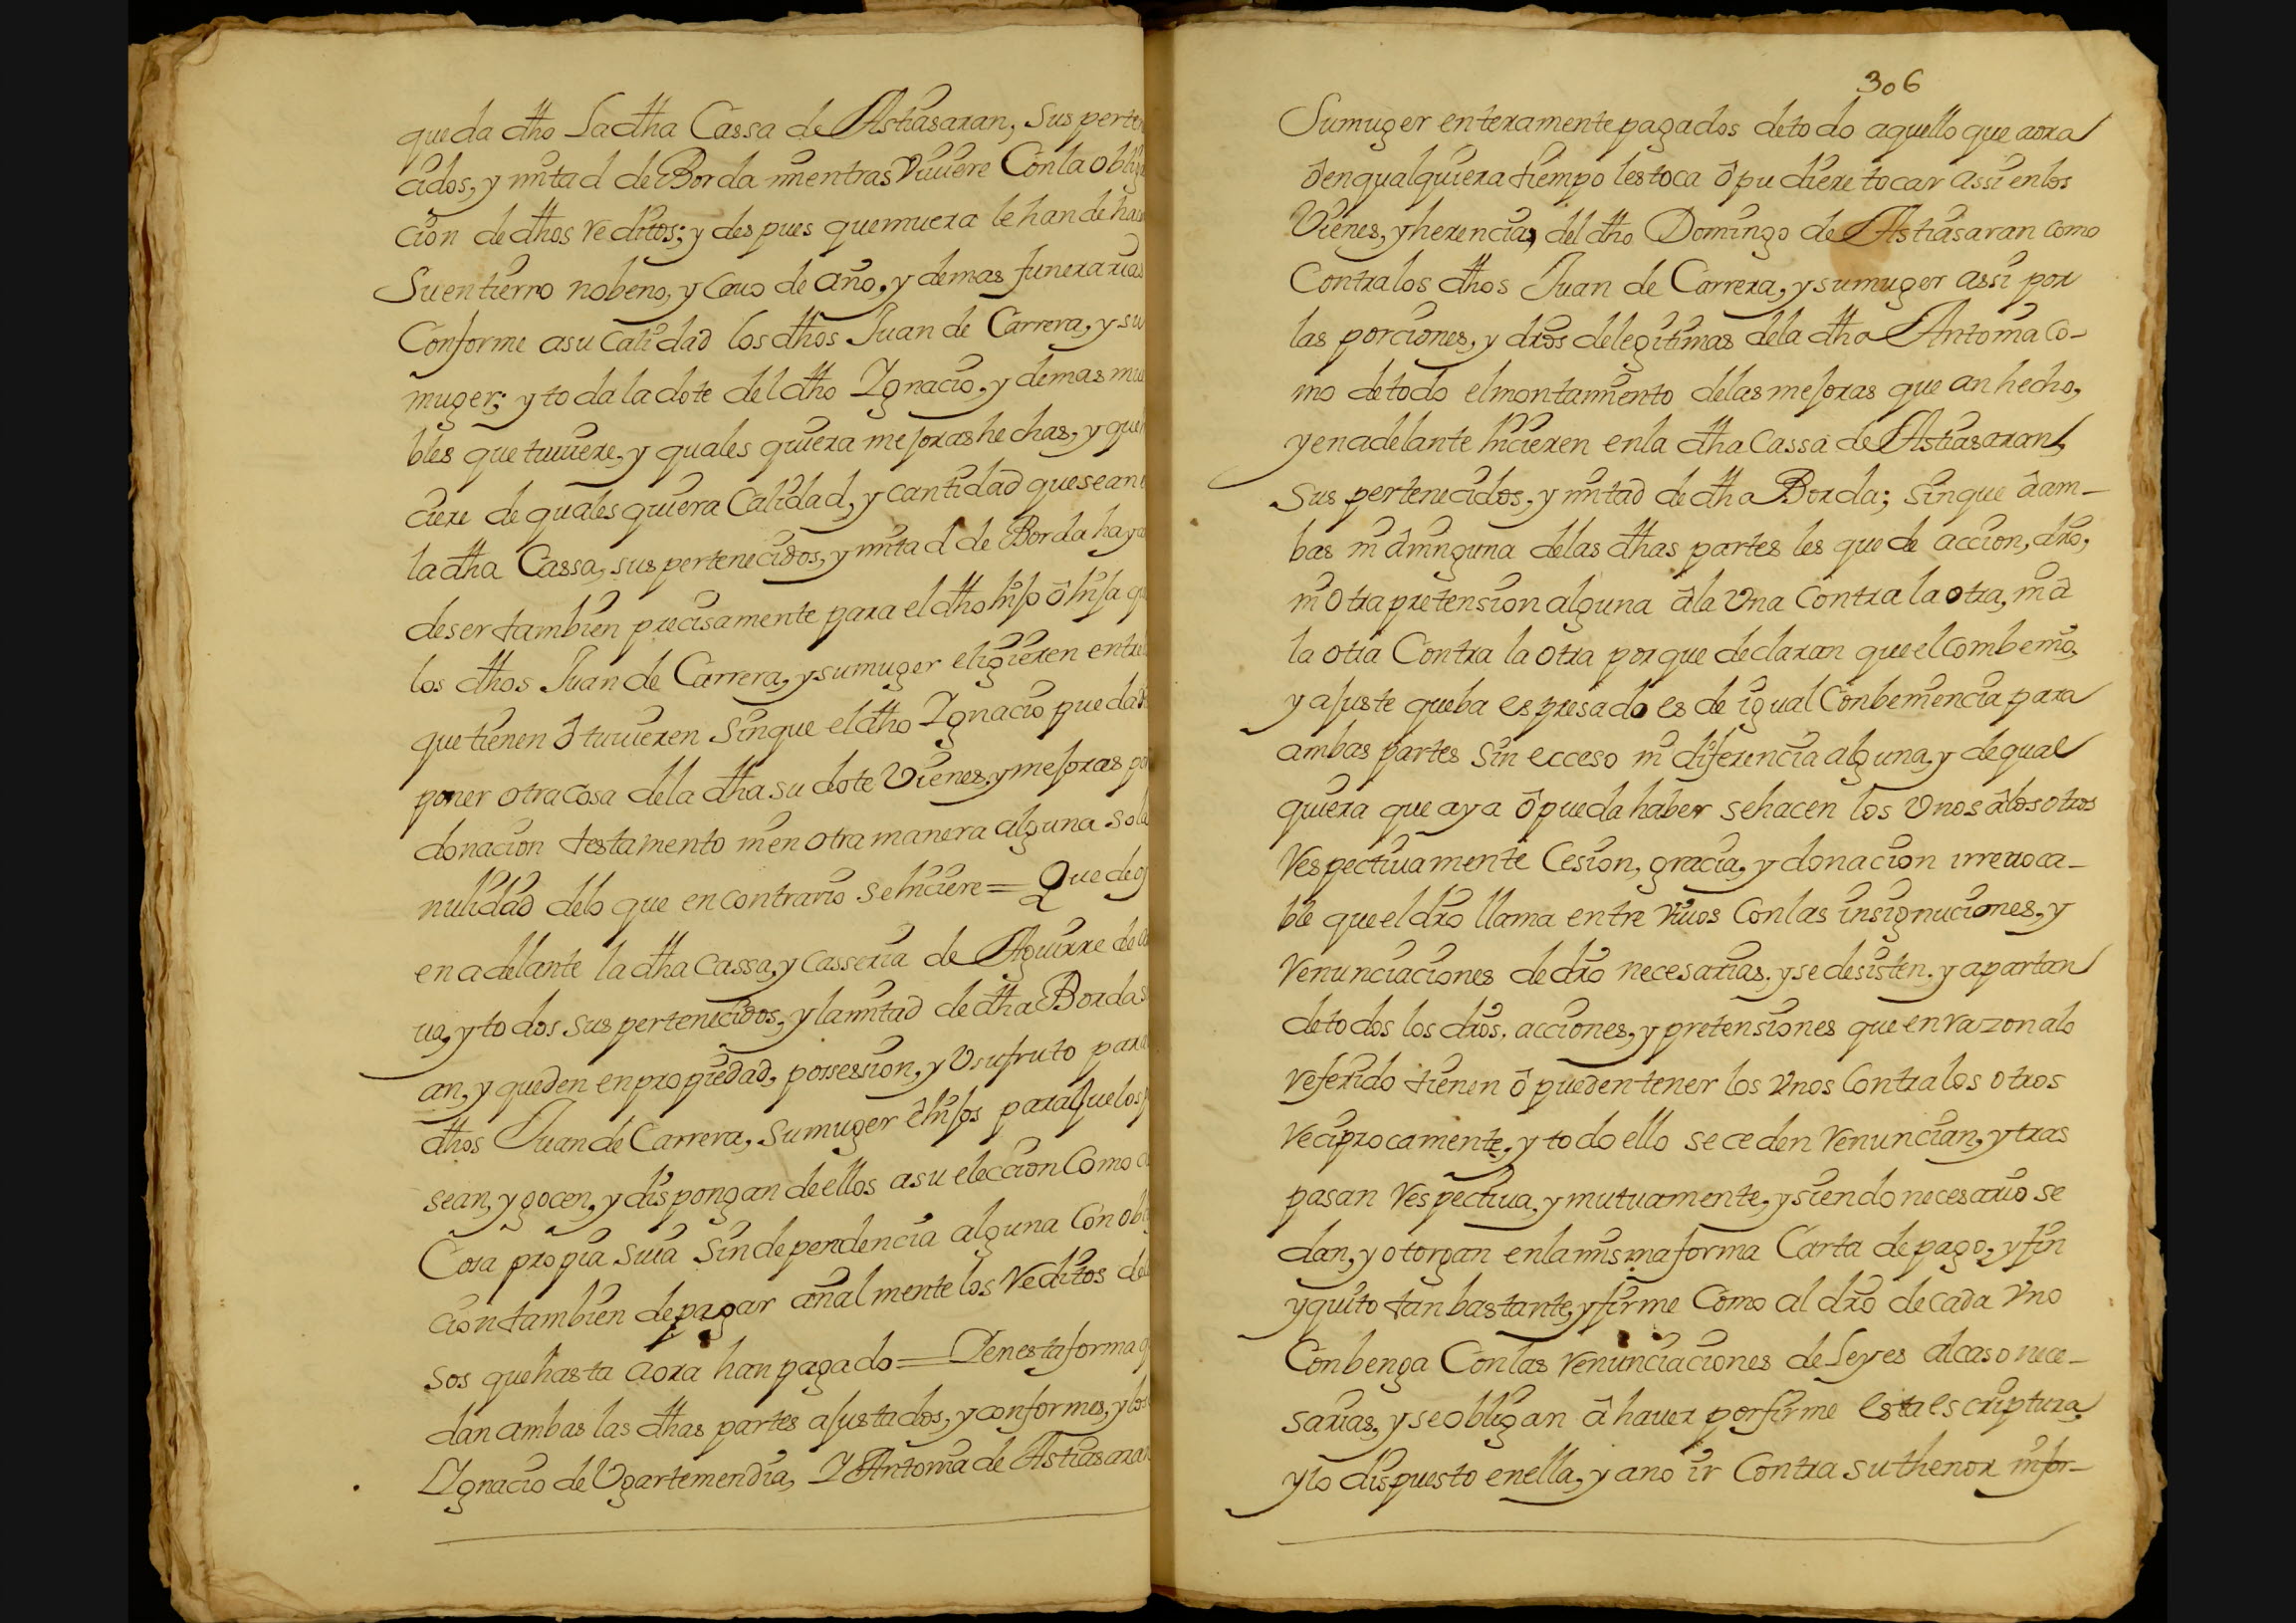 queda dho La dha Cassa de Astiasaran, Sus perte
cidos, y mitad de Borda mientras Viuiere Con la oblig
cion de dhos reditos; y despues que muera le han de hac
Su entierro nobeno, y Cauo de año, y demas funerarias
Conforme a su Calidad los dhos Juan de Carrera, y su
muger; y toda la dote del dho Ignacio, y demas mue
bles que tuuiere, y quales quiera mejoras hechas, y que
ciere de quales quiera Calidad, y cantidad que sean
la dha Cassa, sus pertenecidos, y mitad de Borda haya
de ser tambien precisamente para el dho hijo ô hija qu
los dhos Juan de Carrera, y su muger eligieren entre
que tienen ô tuuieren Sin que el dho Ignacio pueda
poner otra cosa de la dha su dote Vienes, y mejoras po
donacion testamento ni en otra manera alguna Sola
nulidad de lo que en contrario se hiciere = Que de
en adelante la dha Cassa, y Casseria de Aguirre de
ua, y todos sus pertenecidos, y la mitad de dha Borda
an, y queden en propiedad, possession, y Vsufruto para
dhos Juan de Carrera, su muger ê hijos para que los p
sean, y gocen, y dispongan de ellos a su eleccion Como
Cosa propia suia Sin dependencia alguna Con obli
cion tambien de pagar anal mente los Reditos de
sos que hasta aora han pagado = I en esta forma q
dan ambas las dhas partes ajustados, y conformes, y los
Ignacio de Vgartemendia, I Antonia de Astiasaran
306
Su muger enteramente pagados de todo aquello que aora
ô en qualquiera tiempo les toca ô pudiere tocar assi en los
Vienes, y herencias, del dho Domingo de Astiasaran como
Contra los dhos Juan de Carrera, y su muger assi por
las porciones, y dros de legitimas de la dha Antonia Co-
mo de todo el montamiento de las mejoras que an hecho,
y en adelante hicieren en la dha Cassa de Astiasaran,
sus pertenecidos, y mitad de dha Borda; sin que â am-
bas ni â ninguna de las dhas partes les quede accion, dro,
ni otra pretension alguna â la Vna Contra la otra, ni â
la otra Contra la otra porque declaran que el combenio,
y ajuste queba espresado es de igual Conbeniencia para
ambas partes sin ecceso ni diferencia alguna, y de qual
quiera que aya ô pueda haber se hacen los Vnos â los otros
Respectiuamente Cesion, gracia, y donacion irreuoca-
ble que el dro llama entre viuos Con las insignuciones, y
Renunciaciones de dro necesarias, y se desisten, y apartan
de todos los dros, acciones, y pretensiones que en razon a lo
referido tienen ô pueden tener los Vnos Contra los otros
Reciprocamente, y todo ello se ceden Renuncian, y tras
pasan Respectiua, y mutuamente, y siendo necesario se
dan, y otorgan en la misma forma Carta de pago, y fin
y quito tan bastante, y firme Como al dro de cada Vno
Conbenga Con las renunciaciones de Leyes al caso nece-
sarias, y se obligan â hauer por firme esta escriptura,
y lo dispuesto en ella, y a no ir Contra su thenor ni for-